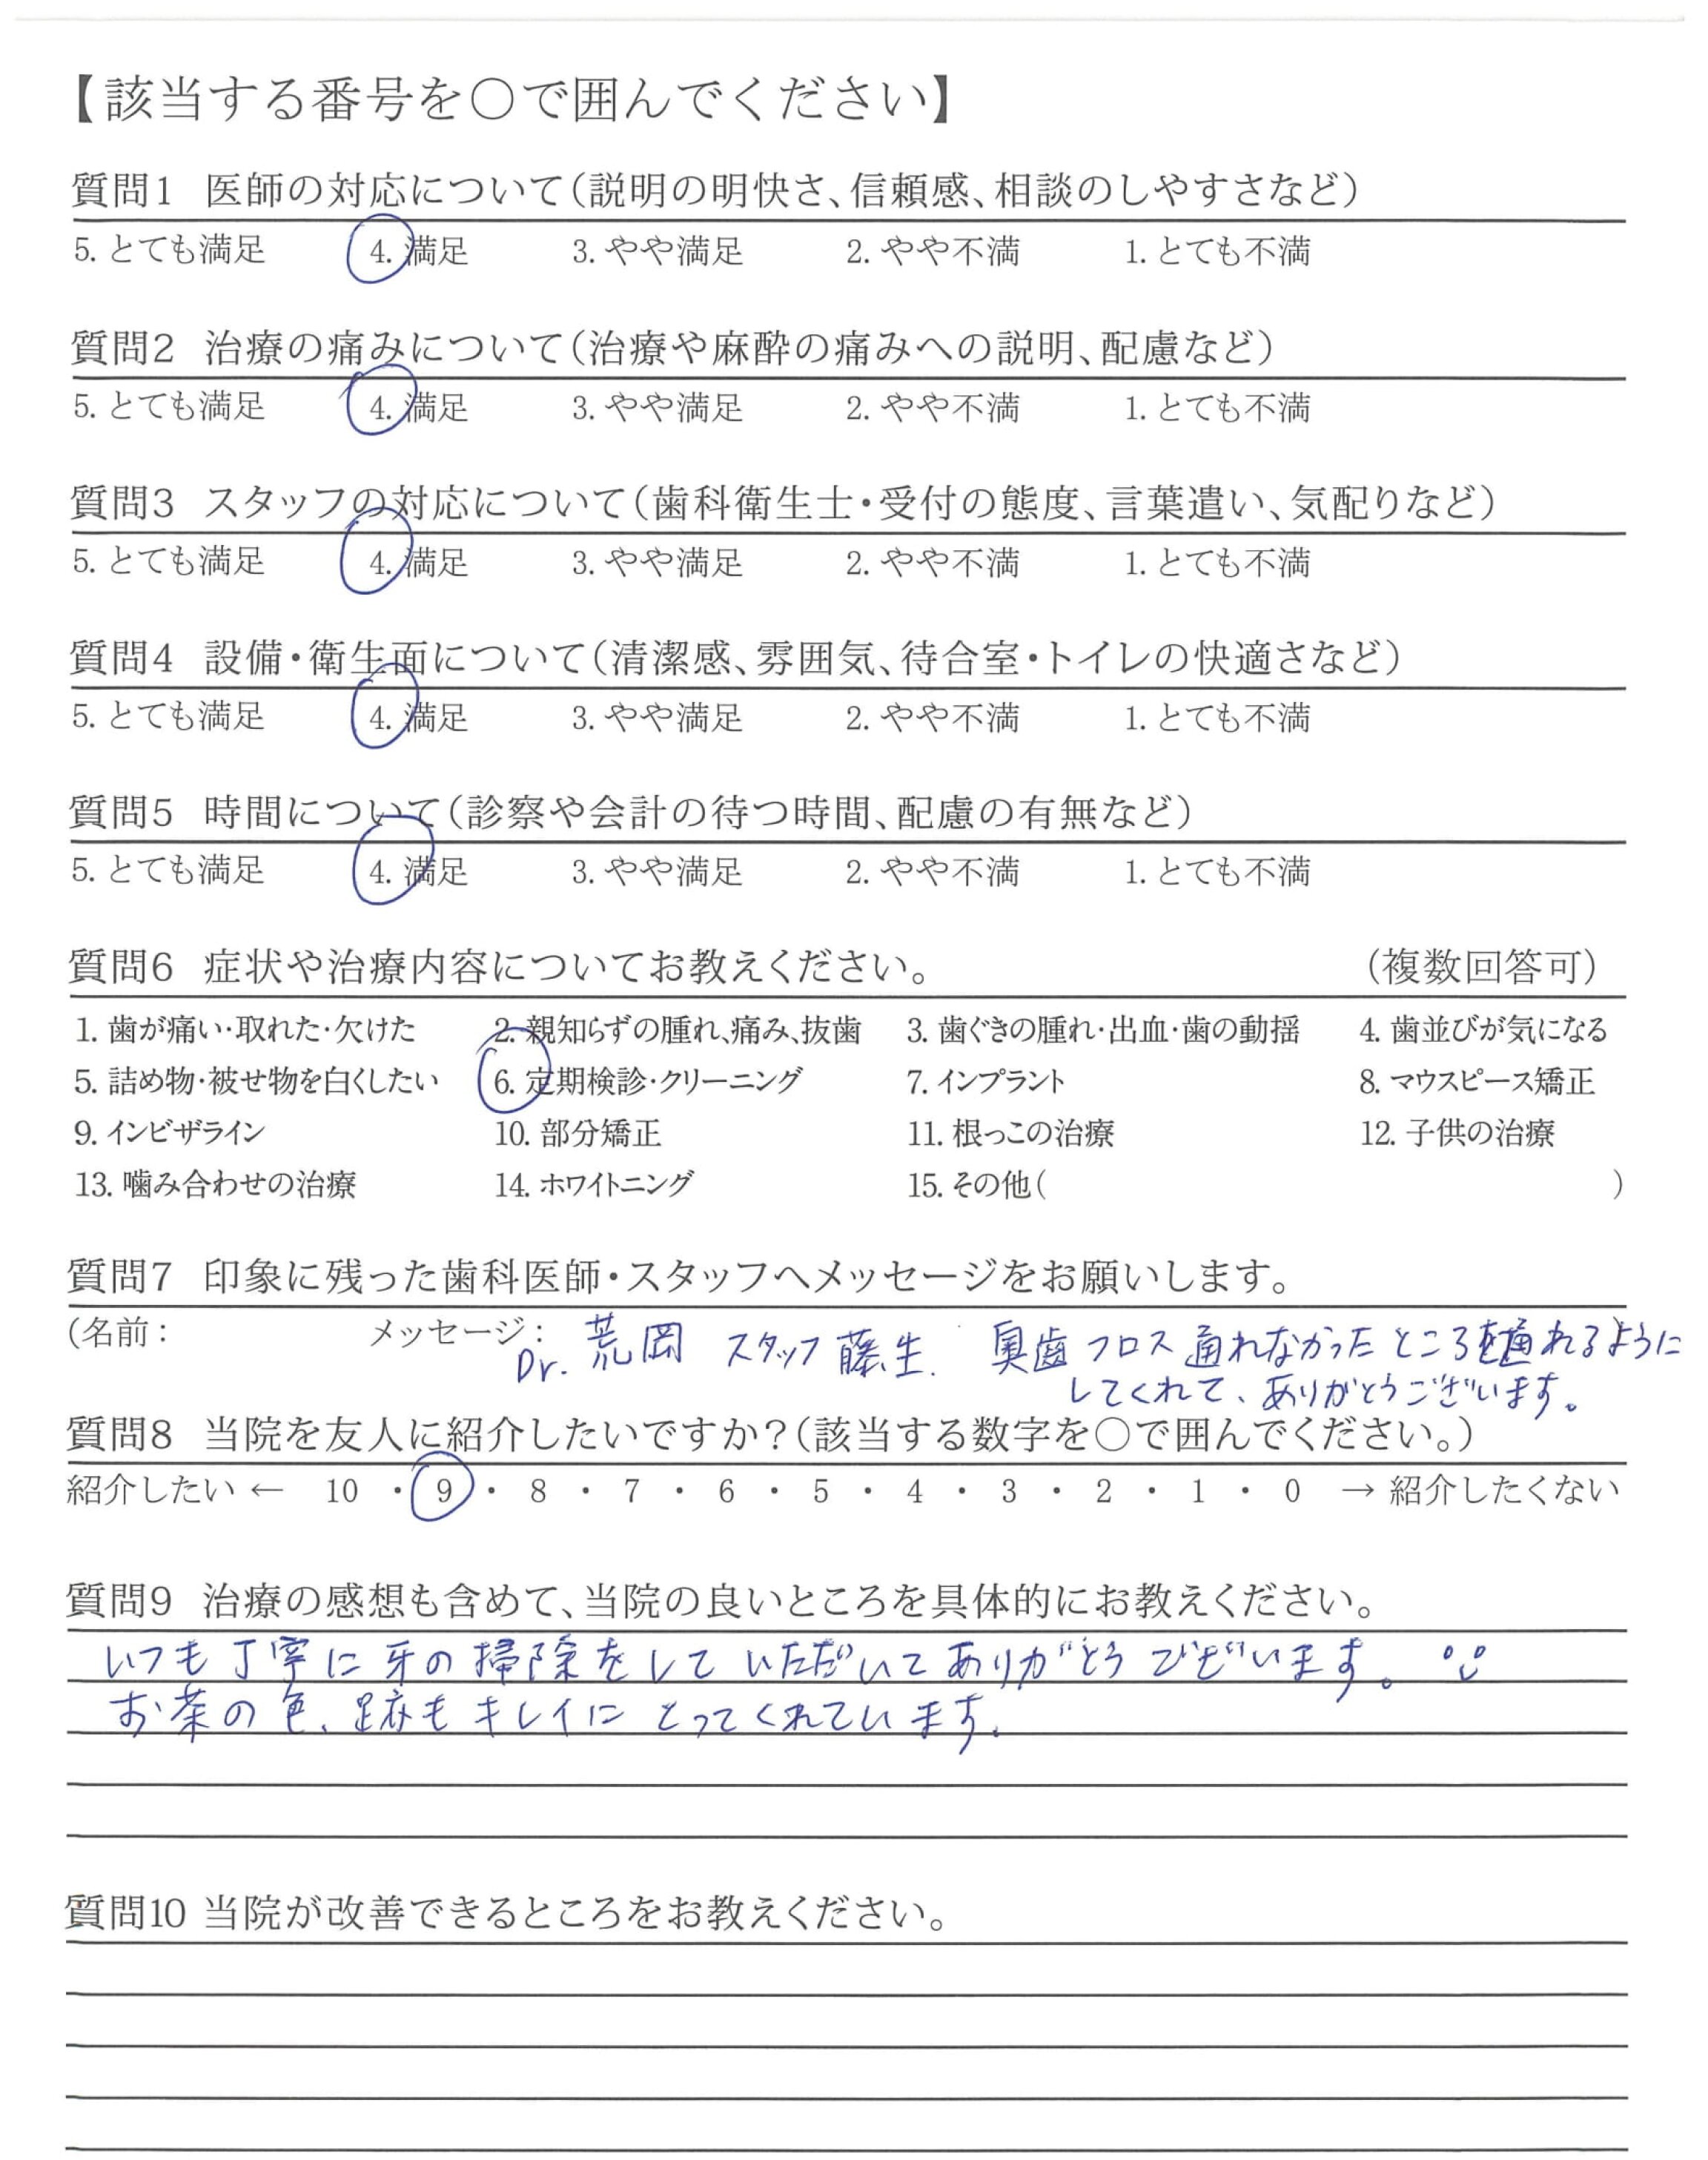 【該当する番号を○で囲んでください】
質問1 医師の対応について(説明の明快さ、信頼感、相談のしやすさなど)
5. とても満足 4. 満足 3. やや満足 2. やや不満 1. とても不満
質問2 治療の痛みについて(治療や麻酔の痛みへの説明、配慮など)
5. とても満足 4. 満足 3. やや満足 2. やや不満 1. とても不満
質問3 スタッフの対応について(歯科衛生士・受付の態度、言葉遣い、気配りなど)
5. とても満足 4. 満足 3. やや満足 2. やや不満 1. とても不満
質問4 設備・衛生面について(清潔感、雰囲気、待合室・トイレの快適さなど)
5. とても満足 4. 満足 3. やや満足 2. やや不満 1. とても不満
質問5 時間について(診察や会計の待つ時間、配慮の有無など)
5. とても満足 4. 満足 3. やや満足 2. やや不満 1. とても不満
質問6 症状や治療内容についてお教えください。 (複数回答可)
1. 歯が痛い・取れた・欠けた 2. 親知らずの腫れ、痛み、抜歯 3. 歯ぐきの腫れ・出血・歯の動揺 4. 歯並びが気になる
5. 詰め物・被せ物を白くしたい 6. 定期検診・クリーニング 7. インプラント 8. マウスピース矯正
9. インビザライン 10. 部分矯正 11. 根っこの治療 12. 子供の治療
13. 噛み合わせの治療 14. ホワイトニング 15. その他( )
質問7 印象に残った歯科医師・スタッフへメッセージをお願いします。
(名前: メッセージ: Dr. 荒岡 スタッフ 藤生. 奥歯 フロス 通れなかった ところを通れるように
してくれて、ありがとうございます。
質問8 当院を友人に紹介したいですか?(該当する数字を○で囲んでください。)
紹介したい ← 10 ・ 9 ・ 8 ・ 7 ・ 6 ・ 5 ・ 4 ・ 3 ・ 2 ・ 1 ・ 0 → 紹介したくない
質問9 治療の感想も含めて、当院の良いところを具体的にお教えください。
いつも丁寧に牙の掃除をしていただいてありがとうございます。
お茶の色、跡もキレイにとってくれています。
質問10 当院が改善できるところをお教えください。